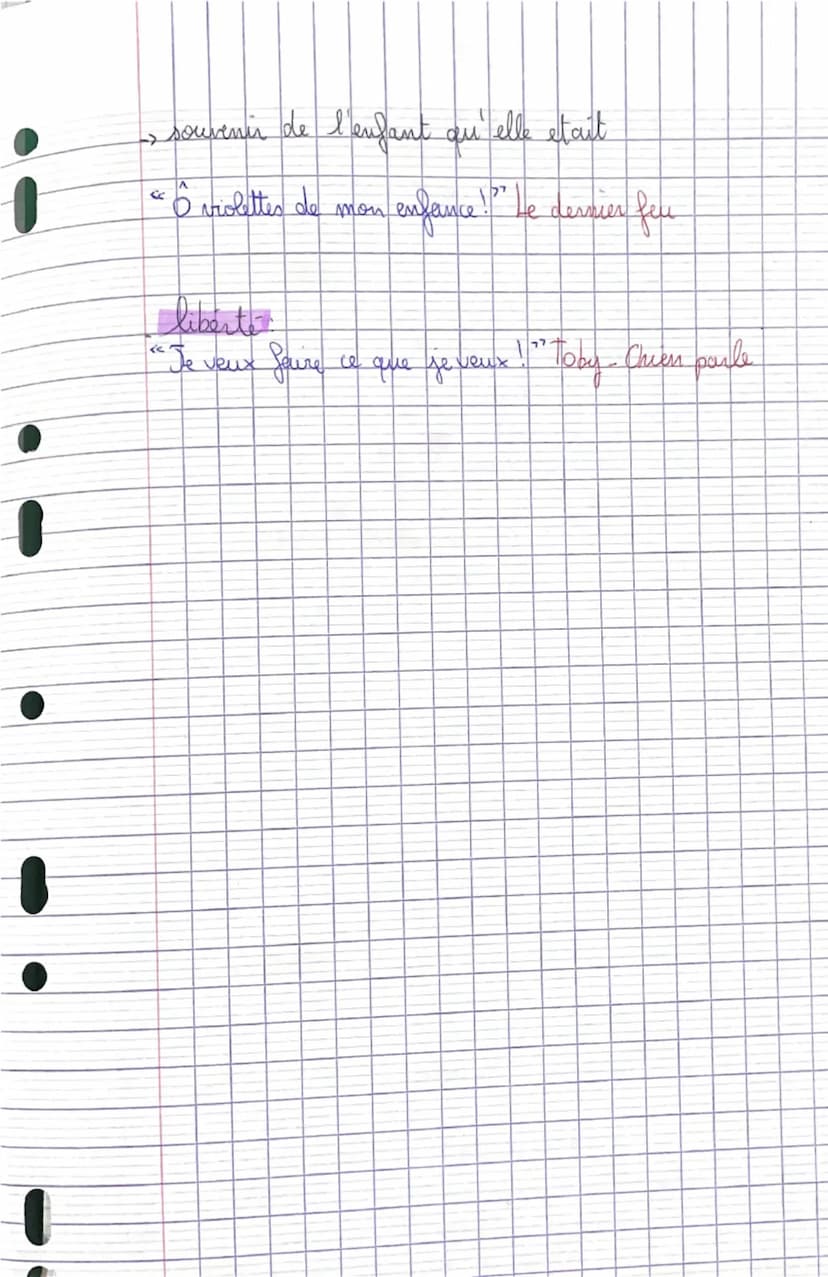 -> souvenir de l'enfant qu'elle etait
"Ô violettes de mon enfance!" Le dernier feu
liberté
"Je veux faire ce que je veux!" Toby-Chien parle